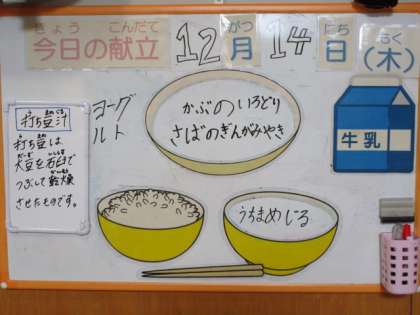 きょう こんだて がつ にち もく
今日の献立 12月14日(木)
ヨーグルト
かぶのいろどり
さばのぎんがみやき
牛乳
打ち豆汁
打ち豆は
大豆を石臼で
つぶして乾燥
させたものです。
うちまめじる